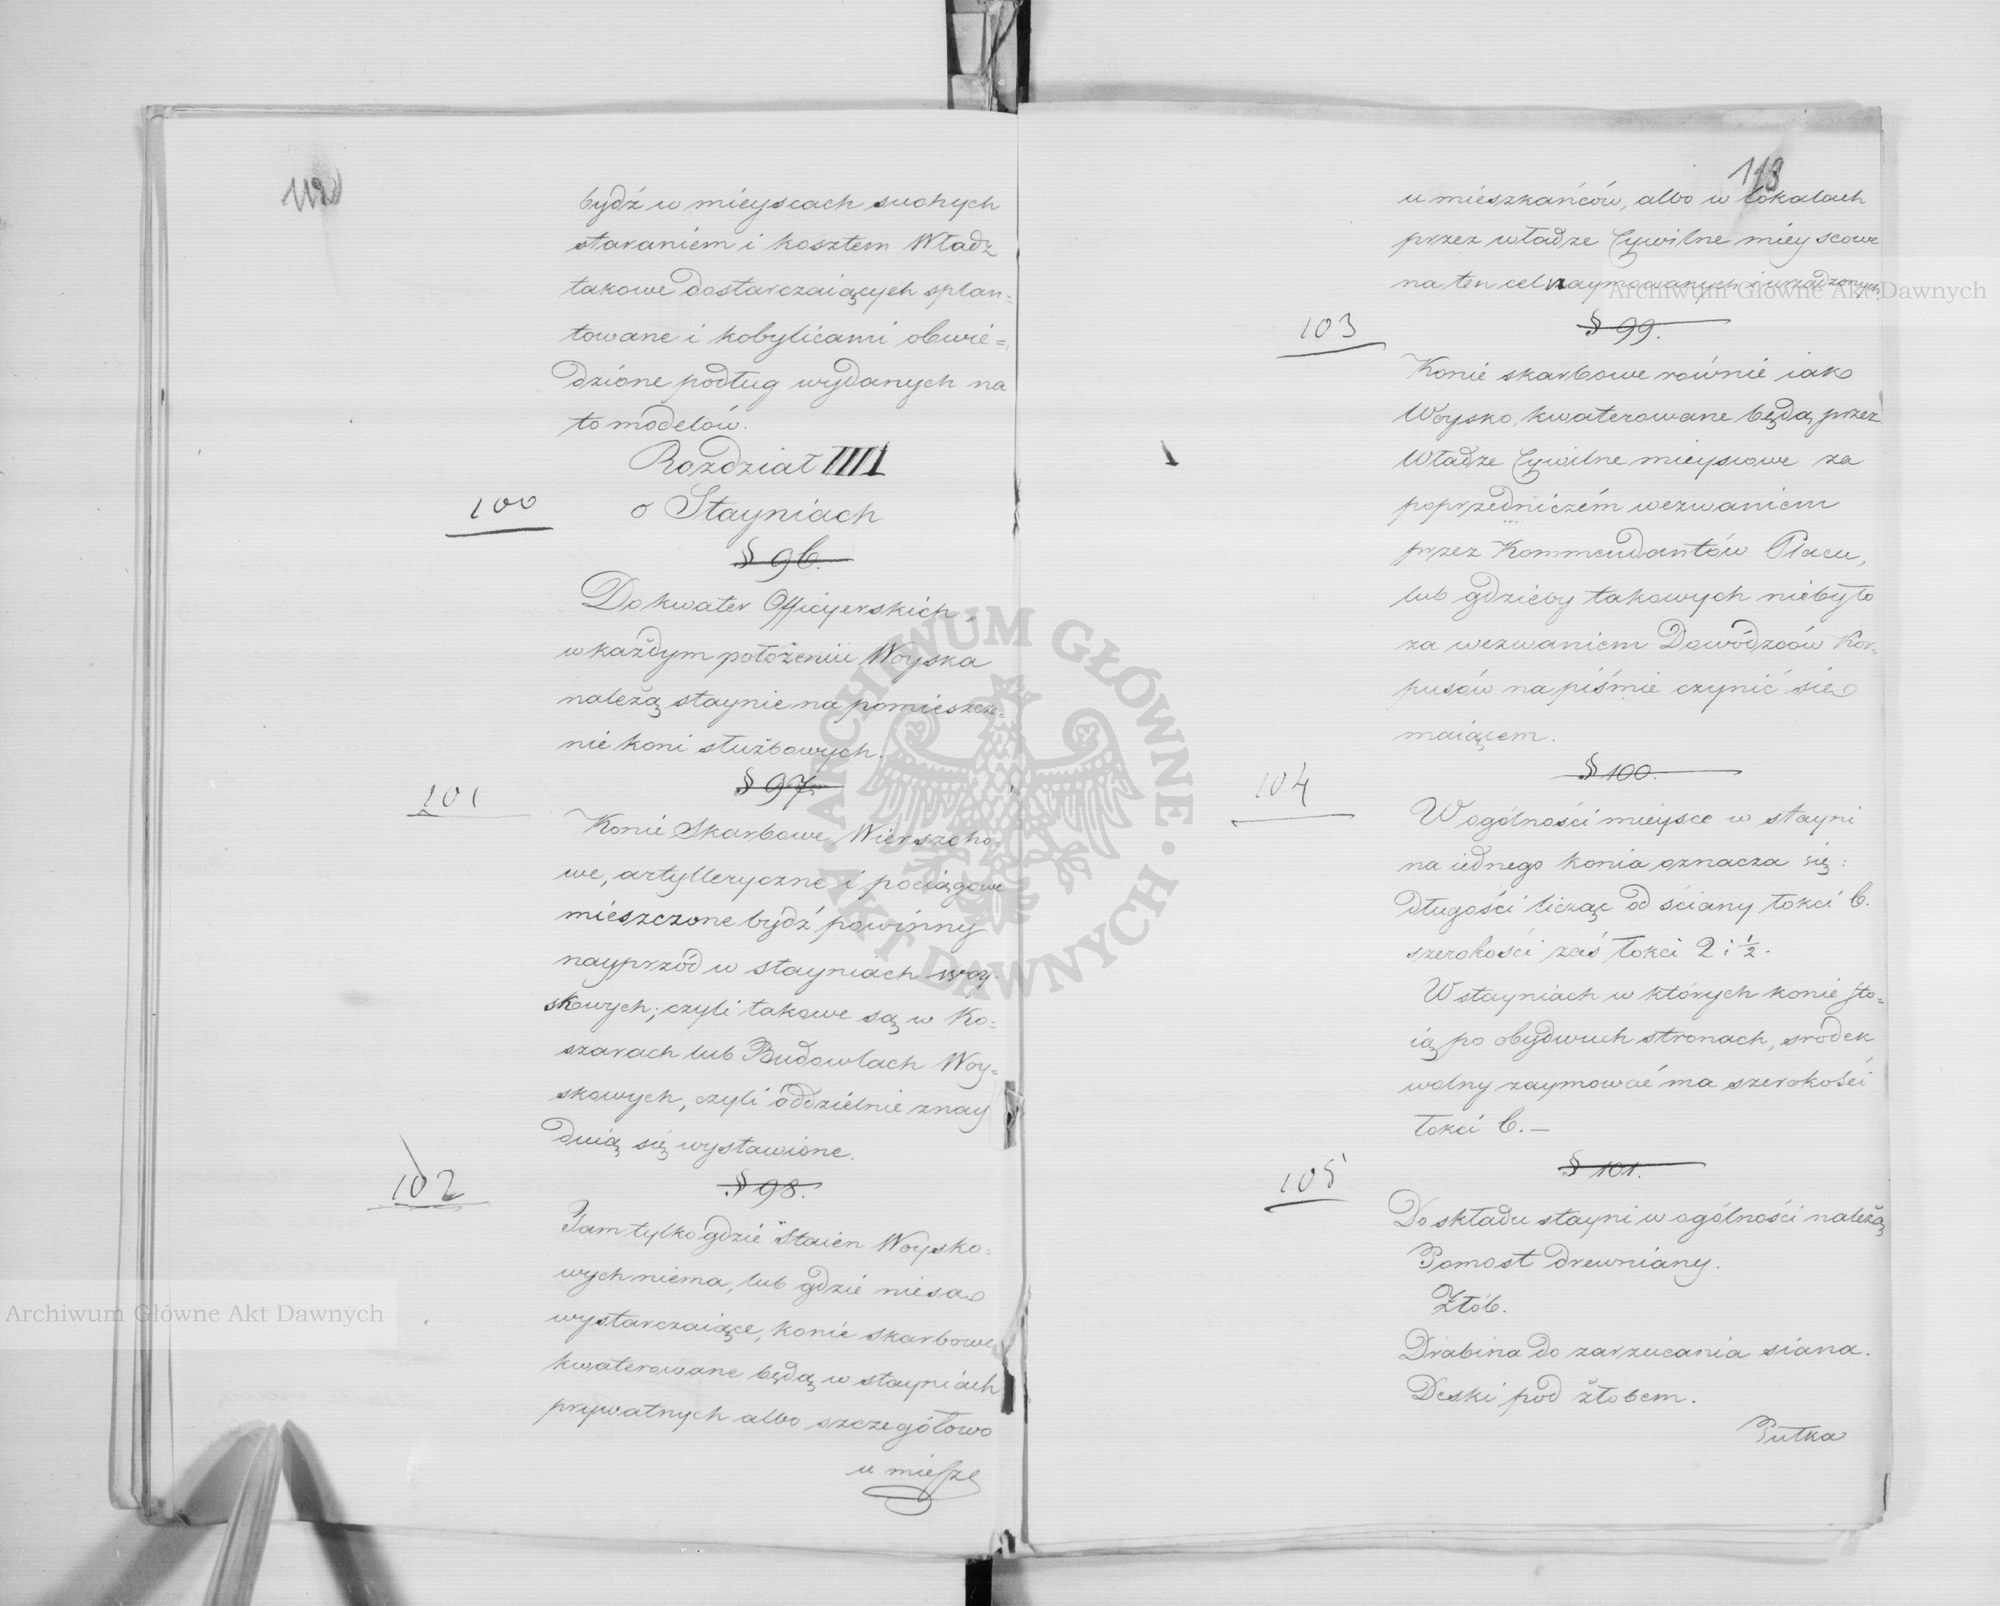 bydź w mieyscach suchych
staraniem i kosztem Władz
takowe dostarczaiących splan=
towane i kobylicami obwie=
dzione podług wydanych na
to modelów.
Rozdział IIII
o Stayniach
100
§ 96.
Do kwater Officyerskich,
w każdym położeniu Woyska
należą staynie na pomieszcze=
nie koni służbowych.
101
§ 97.
Konie Skarbowe Wierzcho-
we, artylleryczne i pociągowe
mieszczone bydź powinny
nayprzód w stayniach woy-
skowych; czyli takowe są w Ko=
szarach lub Budowlach Woy=
skowych, czyli oddzielnie znay
duią się wystawione.
102
§ 98.
Tam tylko gdzie Staien Woysko=
wych niema, lub gdzie niesą
wystarczaiące, konie skarbowe
kwaterowane będą w stayniach
prywatnych albo szczegółowo
u miesze
113
u mieszkańców, albo w lokalach
przez władze Cywilne mieyscowe
na ten cel naymowanych i urządzonych
103
§ 99.
Konie skarbowe równie iako
Woysko, kwaterowane będą przez
Władze Cywilne mieyscowe za
poprzedniczém wezwaniem
przez Kommendantów Placu,
lub gdzieby takowych niebyło
za wezwaniem Dowódzców Kor=
pusów na piśmie czynić się
maiącem.
104
§ 100.
W ogólności mieysce w stayni
na iednego konia oznacza się:
długości licząc od ściany łokci 6.
szerokości zaś łokci 2 i ½.
W stayniach w których konie sto=
ią po obydwuch stronach, srodek
wolny zaymować ma szerokości
łokci 6. —
105
§ 101.
Do składu stayni w ogólności należą
Pomost drewniany.
Żłób.
Drabina do zarzucania siana.
Deski pod żłobem.
Pułka
Archiwum Główne Akt Dawnych
Archiwum Główne Akt Dawnych
ARCHIWUM GŁÓWNE · AKT DAWNYCH ·